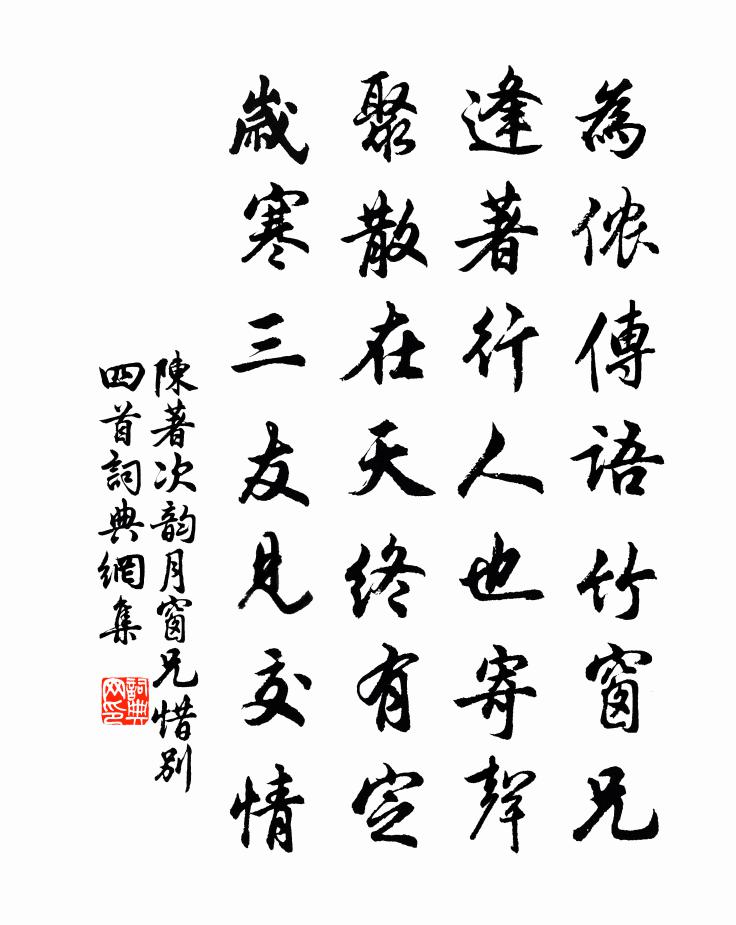 為侬傳語竹窗兄
逢著行人也寄聲
聚散在天終有定
歲寒三友見交情
陳著次韵月窗兄惜別
四首詞典網集
詞典网印